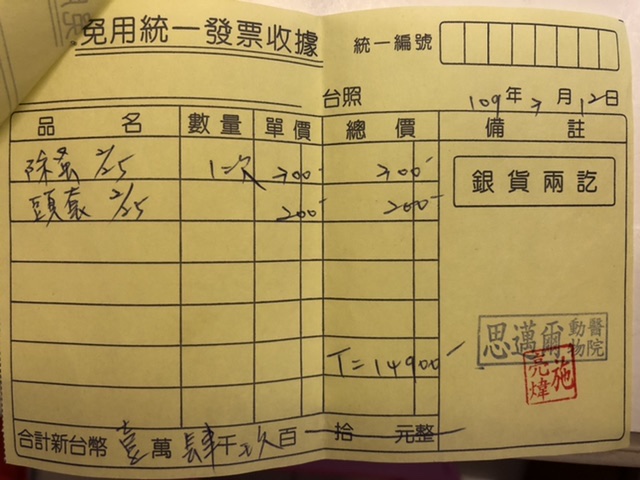 免用統一發票收據
統一編號
台照
109年 月12日
品名 數量 單價 總價 備註
除蚤 2/25 1次 300- 300-
頭套 2/25 200- 200-
銀貨兩訖
思邁爾動物醫院
施亮煒
T=14900-
合計新台幣壹萬肆千玖百拾元整